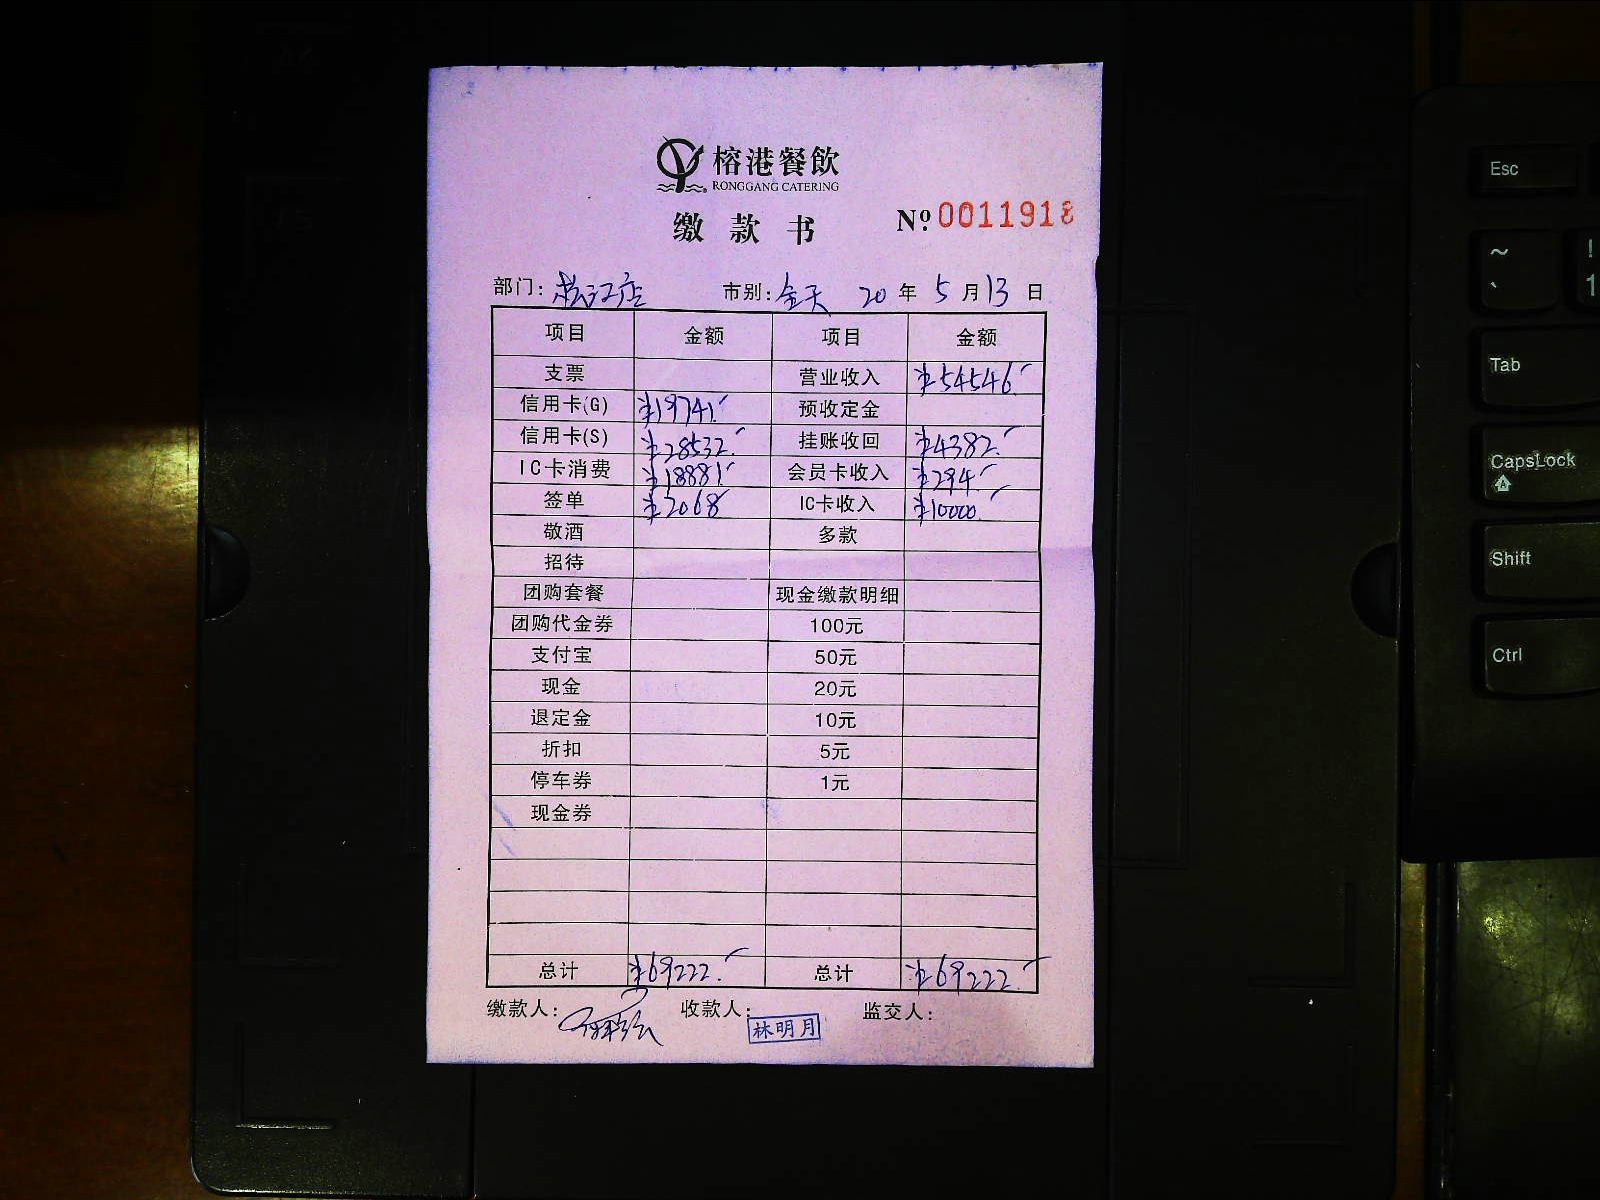 榕港餐飲
RONGGANG CATERING
缴款书 Nº: 0011918
部门: 松江店 市别: 全天 20 年 5 月 13 日
项目 金额 项目 金额
支票 营业收入 ¥54546.
信用卡(G) ¥19741. 预收定金
信用卡(S) ¥28532. 挂账收回 ¥4382.
IC卡消费 ¥18881 会员卡收入 ¥294.
签单 ¥2068 IC卡收入 ¥10000.
敬酒 多款
招待
团购套餐 现金缴款明细
团购代金券 100元
支付宝 50元
现金 20元
退定金 10元
折扣 5元
停车券 1元
现金券
总计 ¥69222. 总计 ¥69222.
缴款人: 收款人: 林明月 监交人:
Esc
~ !
` 1
Tab
CapsLock
Shift
Ctrl